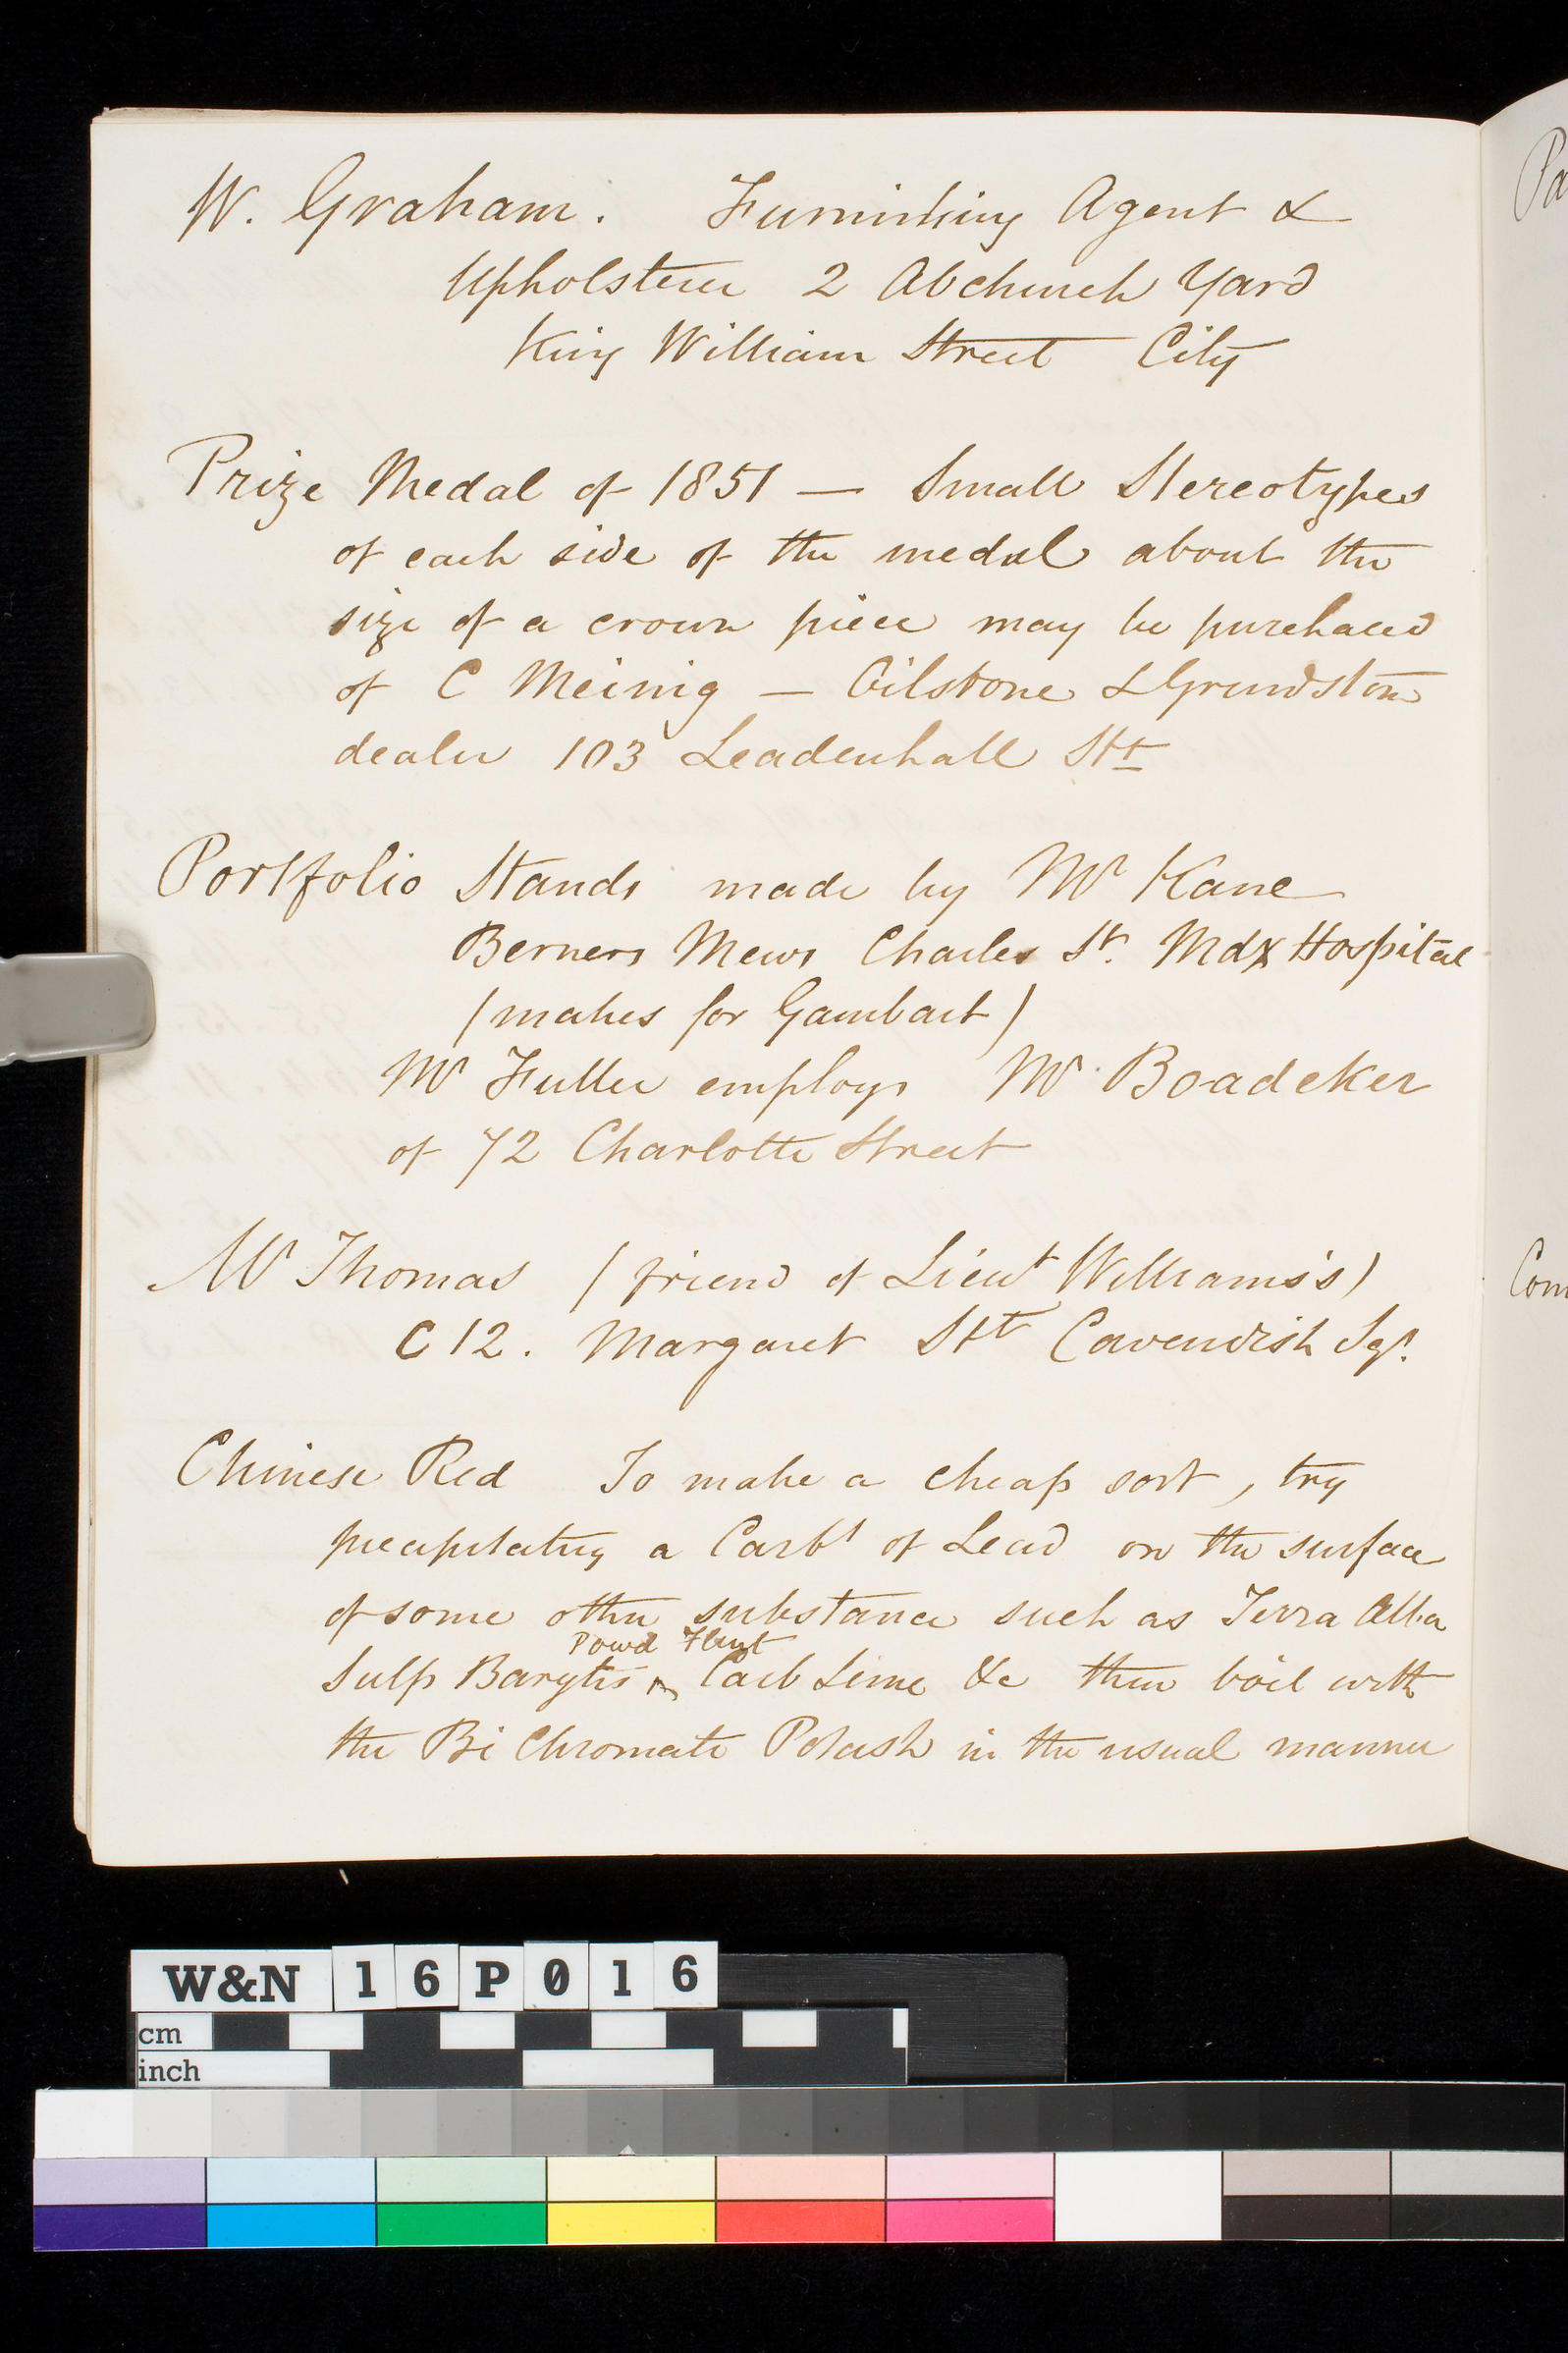 W. Graham. Furnishing Agent &
Upholsterer 2 Abchurch Yard
King William Street City
Prize Medal of 1851 — Small Stereotypes
of each side of the medal about the
size of a crown piece may be purchased
of C Meinig — Oilstone & Grindstone
dealer 103 Leadenhall Stt
Portfolio Stands made by Mr Kane
Berners Mews Charles St. Mdx Hospital
(makes for Gambart)
Mr Fuller employs Mr Boadeker
of 72 Charlotte Street
Mr Thomas (friend of Lieut Williams's)
C 12. Margaret Stt Cavendish Sqr.
Chinese Red To make a cheap sort, try
precipitating a Carbt of Lead on the surface
of some other substance such as Terra Alba
Powd Flint
Sulp Barytes ^ Carb Lime &c then boil with
the Bi Chromate Potash in the usual manner
Pa
Com
W&N 16P016
cm
inch